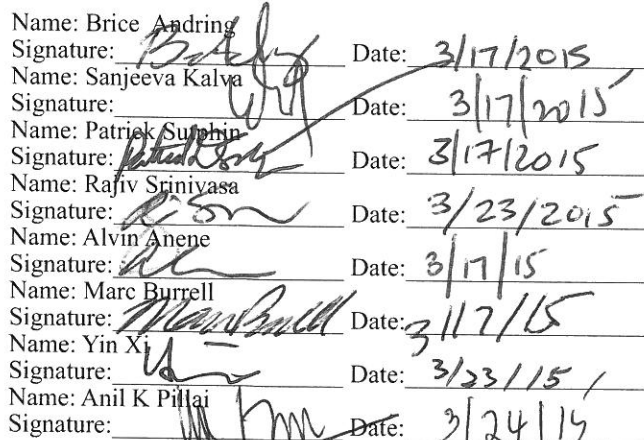 Name: Brice Andring
Signature: Date: 3/17/2015
Name: Sanjeeva Kalva
Signature: Date: 3/17/2015
Name: Patrick Sutphin
Signature: Date: 3/17/2015
Name: Rajiv Srinivasa
Signature: Date: 3/23/2015
Name: Alvin Anene
Signature: Date: 3/17/15
Name: Marc Burrell
Signature: Marc Burrell Date: 3/17/15
Name: Yin Xi
Signature: Date: 3/23/15
Name: Anil K Pillai
Signature: Date: 3/24/15